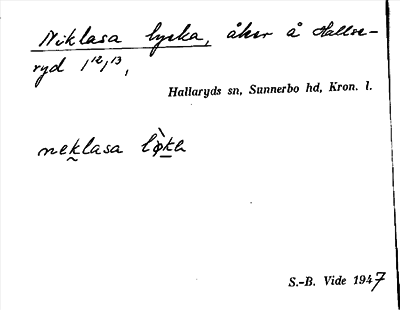 Niklasa lycka, åker å Hallse-
ryd 1¹²/¹³,
Hallaryds sn, Sunnerbo hd, Kron. l.
neklasa
S.-B. Vide 1947